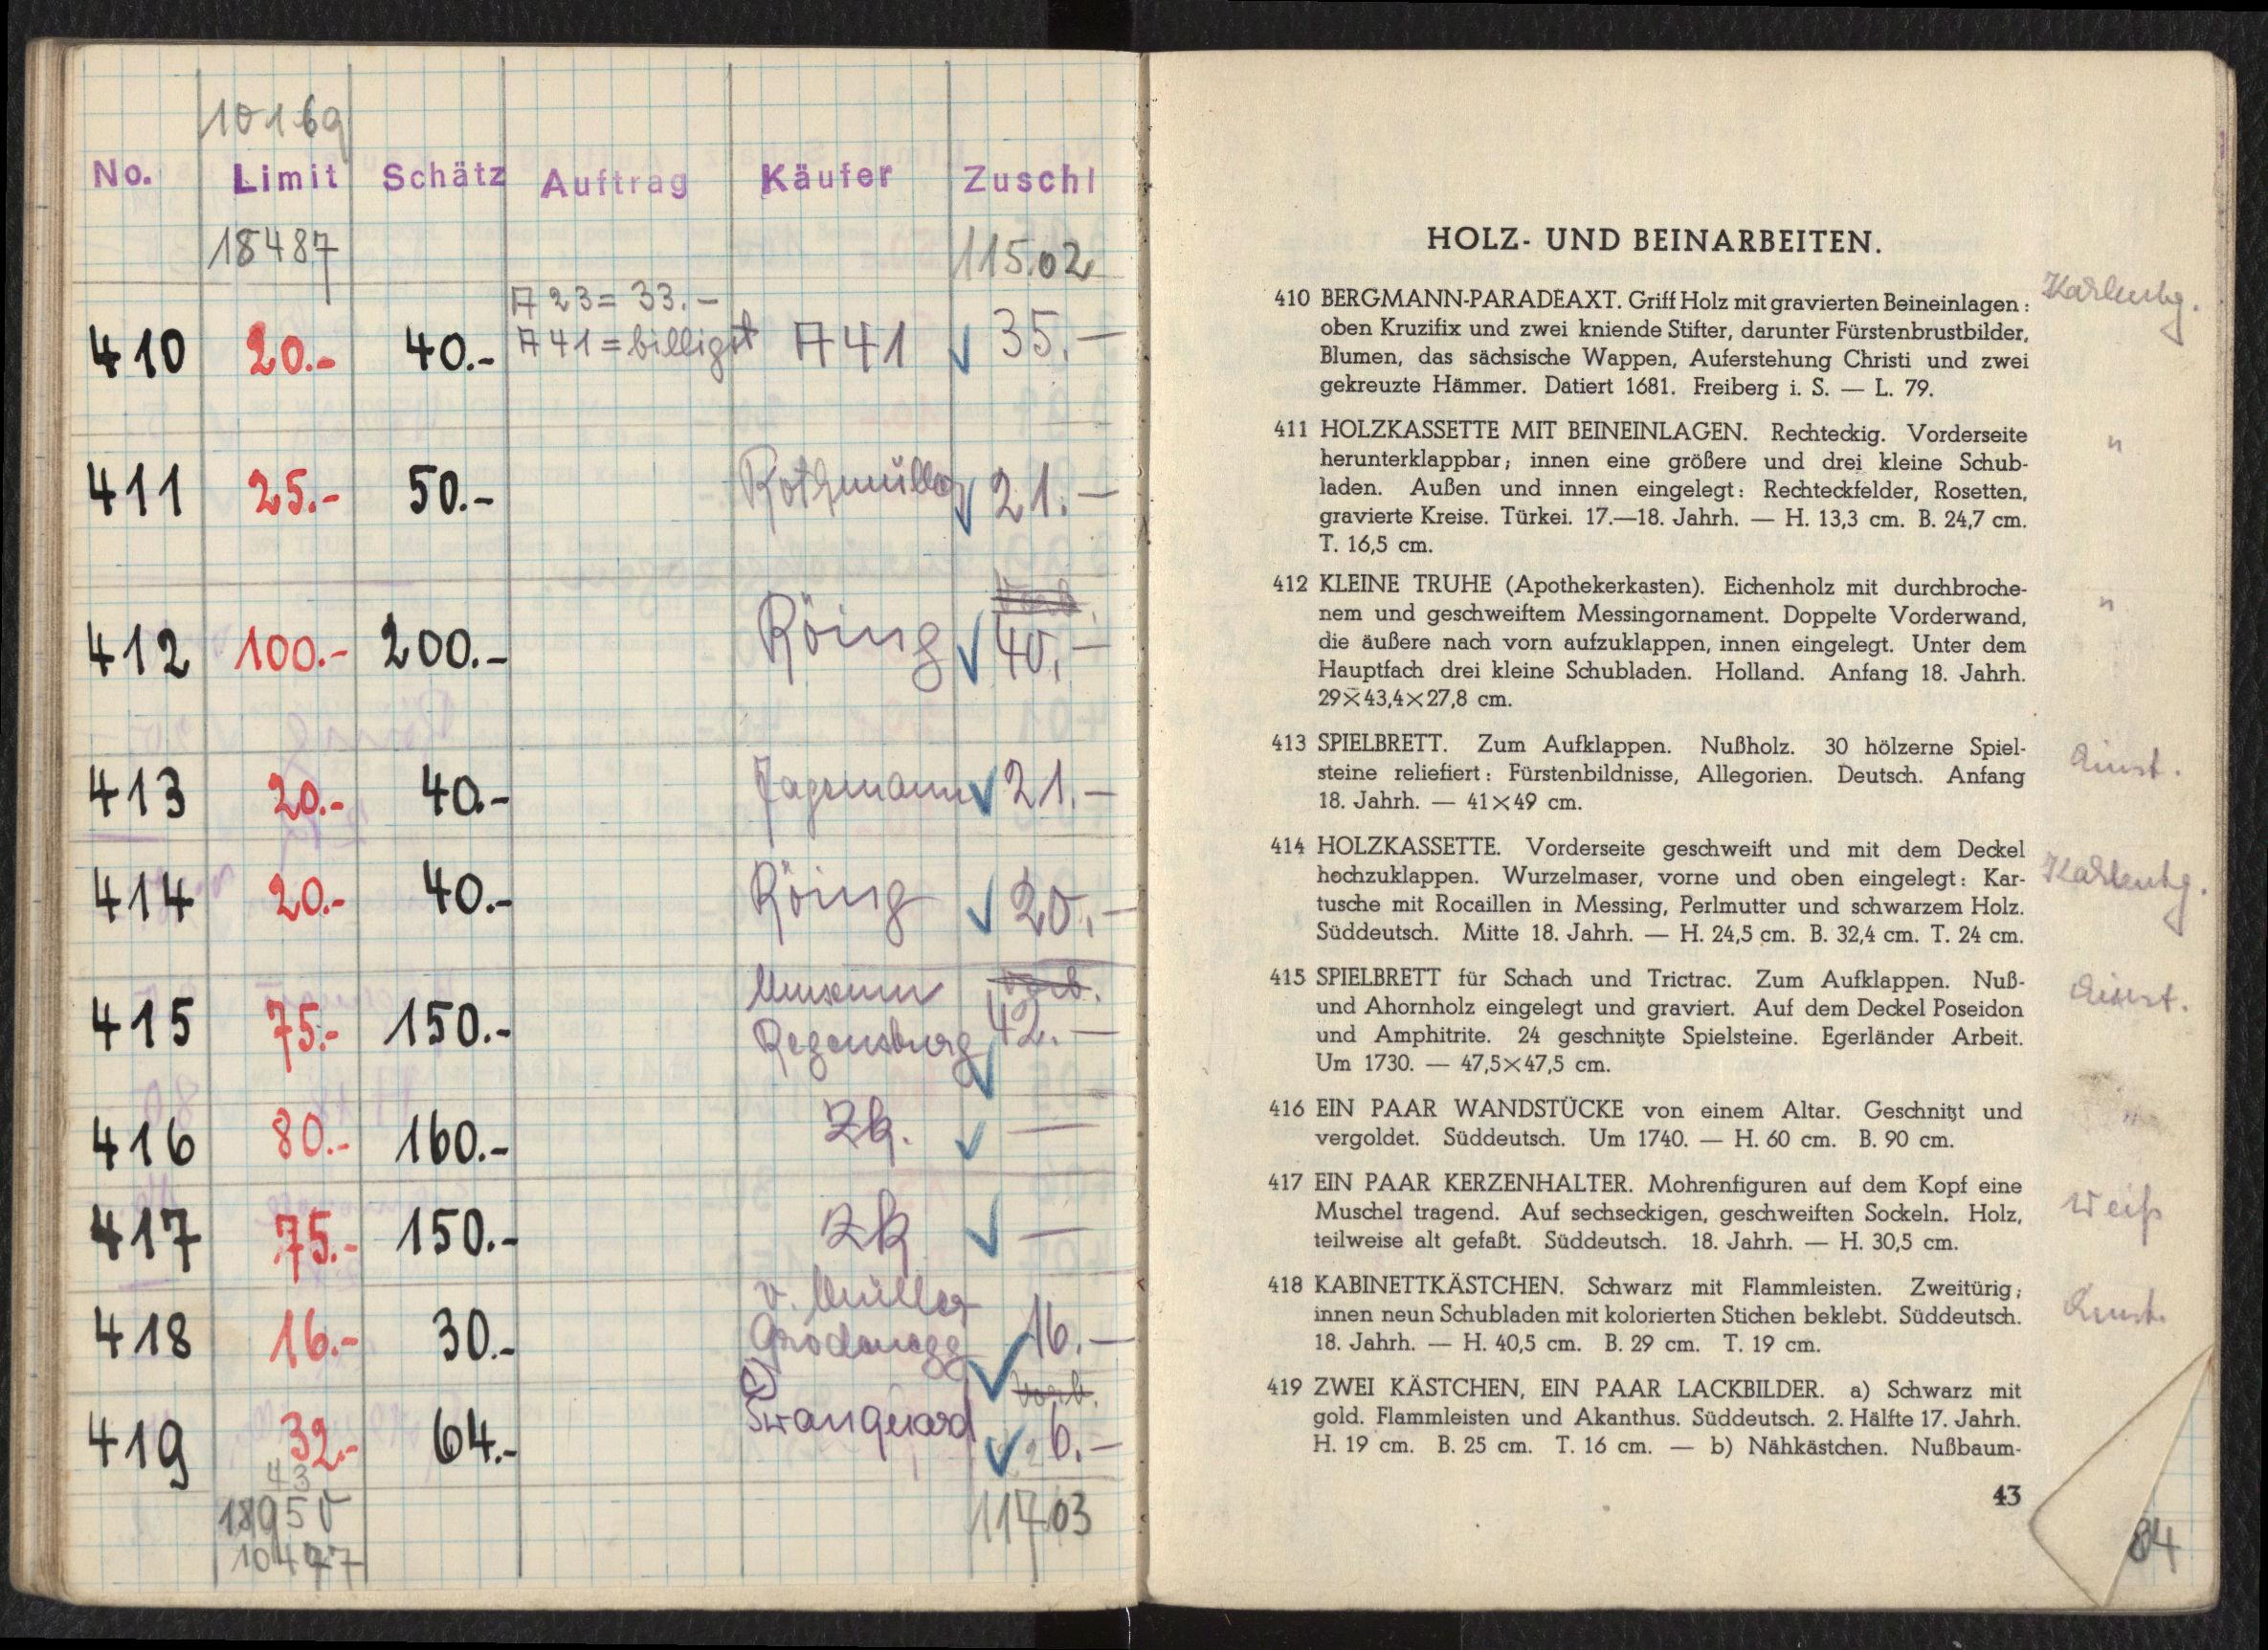 10169
No. Limit Schätz Auftrag Käufer Zuschl
18487 11502
A 23 = 33.-
410 20.- 40.- A 41 = billigst A 41 35.—
411 25.- 50.- Rothmüller 21.—
412 100.- 200.- Röing 40.—
413 20.- 40.- Jagemann 21.—
414 20.- 40.- Röing 20.—
415 75.- 150.- Museum
Regensburg 42.—
416 80.- 160.- zk. —
417 75.- 150.- zk —
v. Müller
418 16.- 30.- 16.—
419 32.- 64.- 6.—
43
11703
HOLZ- UND BEINARBEITEN.
410 BERGMANN-PARADEAXT. Griff Holz mit gravierten Beineinlagen:
oben Kruzifix und zwei kniende Stifter, darunter Fürstenbrustbilder,
Blumen, das sächsische Wappen, Auferstehung Christi und zwei
gekreuzte Hämmer. Datiert 1681. Freiberg i. S. — L. 79.
411 HOLZKASSETTE MIT BEINEINLAGEN. Rechteckig. Vorderseite "
herunterklappbar; innen eine größere und drei kleine Schub-
laden. Außen und innen eingelegt: Rechteckfelder, Rosetten,
gravierte Kreise. Türkei. 17.—18. Jahrh. — H. 13,3 cm. B. 24,7 cm.
T. 16,5 cm.
412 KLEINE TRUHE (Apothekerkasten). Eichenholz mit durchbroche- "
nem und geschweiftem Messingornament. Doppelte Vorderwand,
die äußere nach vorn aufzuklappen, innen eingelegt. Unter dem
Hauptfach drei kleine Schubladen. Holland. Anfang 18. Jahrh.
29×43,4×27,8 cm.
413 SPIELBRETT. Zum Aufklappen. Nußholz. 30 hölzerne Spiel-
steine reliefiert: Fürstenbildnisse, Allegorien. Deutsch. Anfang
18. Jahrh. — 41×49 cm.
414 HOLZKASSETTE. Vorderseite geschweift und mit dem Deckel
hochzuklappen. Wurzelmaser, vorne und oben eingelegt: Kar-
tusche mit Rocaillen in Messing, Perlmutter und schwarzem Holz.
Süddeutsch. Mitte 18. Jahrh. — H. 24,5 cm. B. 32,4 cm. T. 24 cm.
415 SPIELBRETT für Schach und Trictrac. Zum Aufklappen. Nuß-
und Ahornholz eingelegt und graviert. Auf dem Deckel Poseidon
und Amphitrite. 24 geschnitzte Spielsteine. Egerländer Arbeit.
Um 1730. — 47,5×47,5 cm.
416 EIN PAAR WANDSTÜCKE von einem Altar. Geschnitzt und "
vergoldet. Süddeutsch. Um 1740. — H. 60 cm. B. 90 cm.
417 EIN PAAR KERZENHALTER. Mohrenfiguren auf dem Kopf eine Weiß
Muschel tragend. Auf sechseckigen, geschweiften Sockeln. Holz,
teilweise alt gefaßt. Süddeutsch. 18. Jahrh. — H. 30,5 cm.
418 KABINETTKÄSTCHEN. Schwarz mit Flammleisten. Zweitürig;
innen neun Schubladen mit kolorierten Stichen beklebt. Süddeutsch.
18. Jahrh. — H. 40,5 cm. B. 29 cm. T. 19 cm.
419 ZWEI KÄSTCHEN, EIN PAAR LACKBILDER. a) Schwarz mit
gold. Flammleisten und Akanthus. Süddeutsch. 2. Hälfte 17. Jahrh.
H. 19 cm. B. 25 cm. T. 16 cm. — b) Nähkästchen. Nußbaum-
43
84